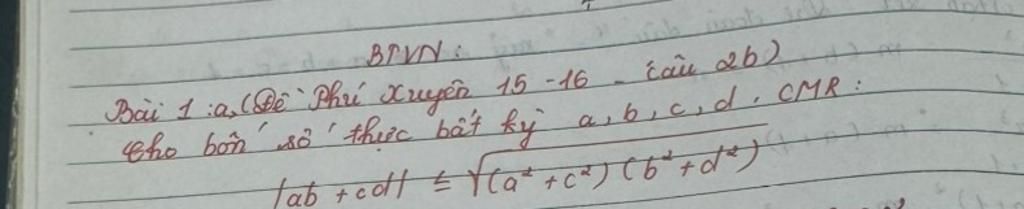 BTVN:
Bài 1: a, (Đề Phú Xuyên 15-16 - câu 2b)
Cho bốn số thực bất kỳ a, b, c, d. CMR:
|ab + cd| ≤ √(a² + c²)(b² + d²)